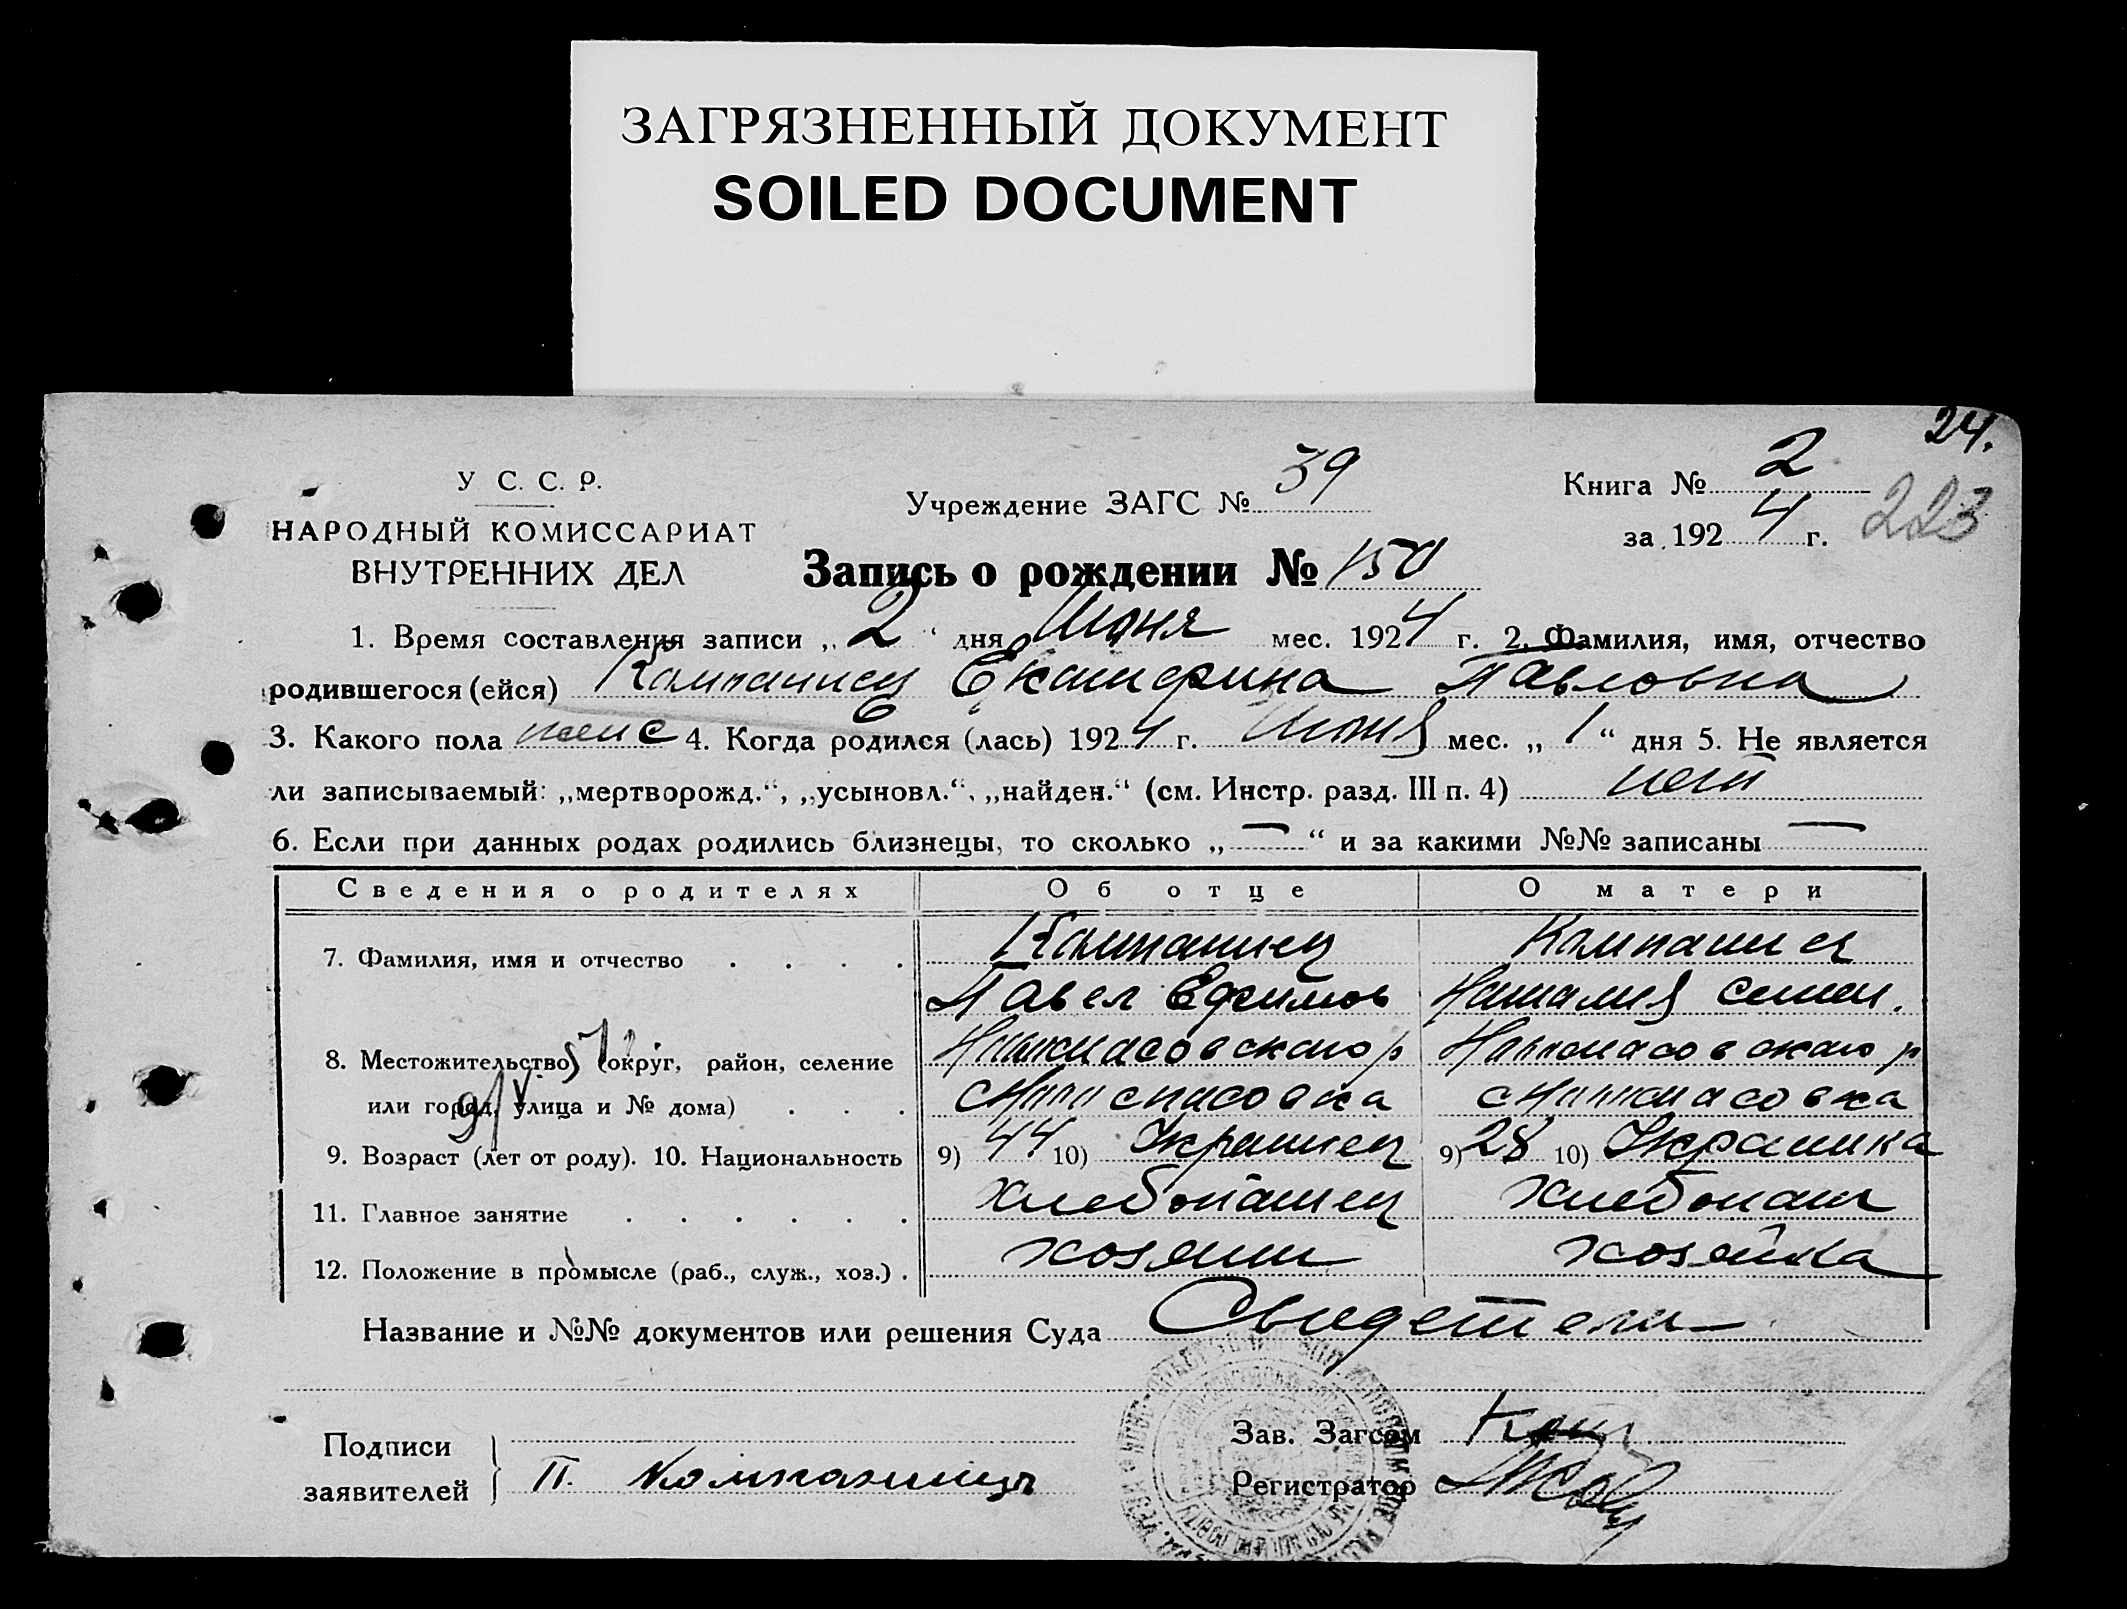 ЗАГРЯЗНЕННЫЙ ДОКУМЕНТ
SOILED DOCUMENT
24.
У С. С. Р.
НАРОДНЫЙ КОМИССАРИАТ
ВНУТРЕННИХ ДЕЛ
Учреждение ЗАГС № 39
Книга № 2
за 1924 г. 223
Запись о рождении № 150
1. Время составления записи „ 2 “ дня Июня мес. 1924 г. 2. Фамилия, имя, отчество
родившегося (ейся) Компаниец Екатерина Павловна
3. Какого пола женс 4. Когда родился (лась) 1924 г. Июня мес. „ 1 “ дня 5. Не является
ли записываемый: „мертворожд.“, „усыновл.“, „найден.“ (см. Инстр. разд. III п. 4) нет
6. Если при данных родах родились близнецы, то сколько „ — “ и за какими №№ записаны —
Сведения о родителях Об отце О матери
7. Фамилия, имя и отчество . . . . Компаниец Компаниец
Павел Ефимов Наталия Семен.
8. Местожительство (округ, район, селение
или город, улица и № дома) . . .
9. Возраст (лет от роду). 10. Национальность 9) 44 10) Украинец 9) 28 10) Украинка
11. Главное занятие . . . . . . Хлебопашец Хлебопаш
12. Положение в промысле (раб., служ., хоз.) . хозяин хозяйка
Название и №№ документов или решения Суда Свидетели
Подписи
заявителей П. Компаниец
Зав. Загсом
Регистратор